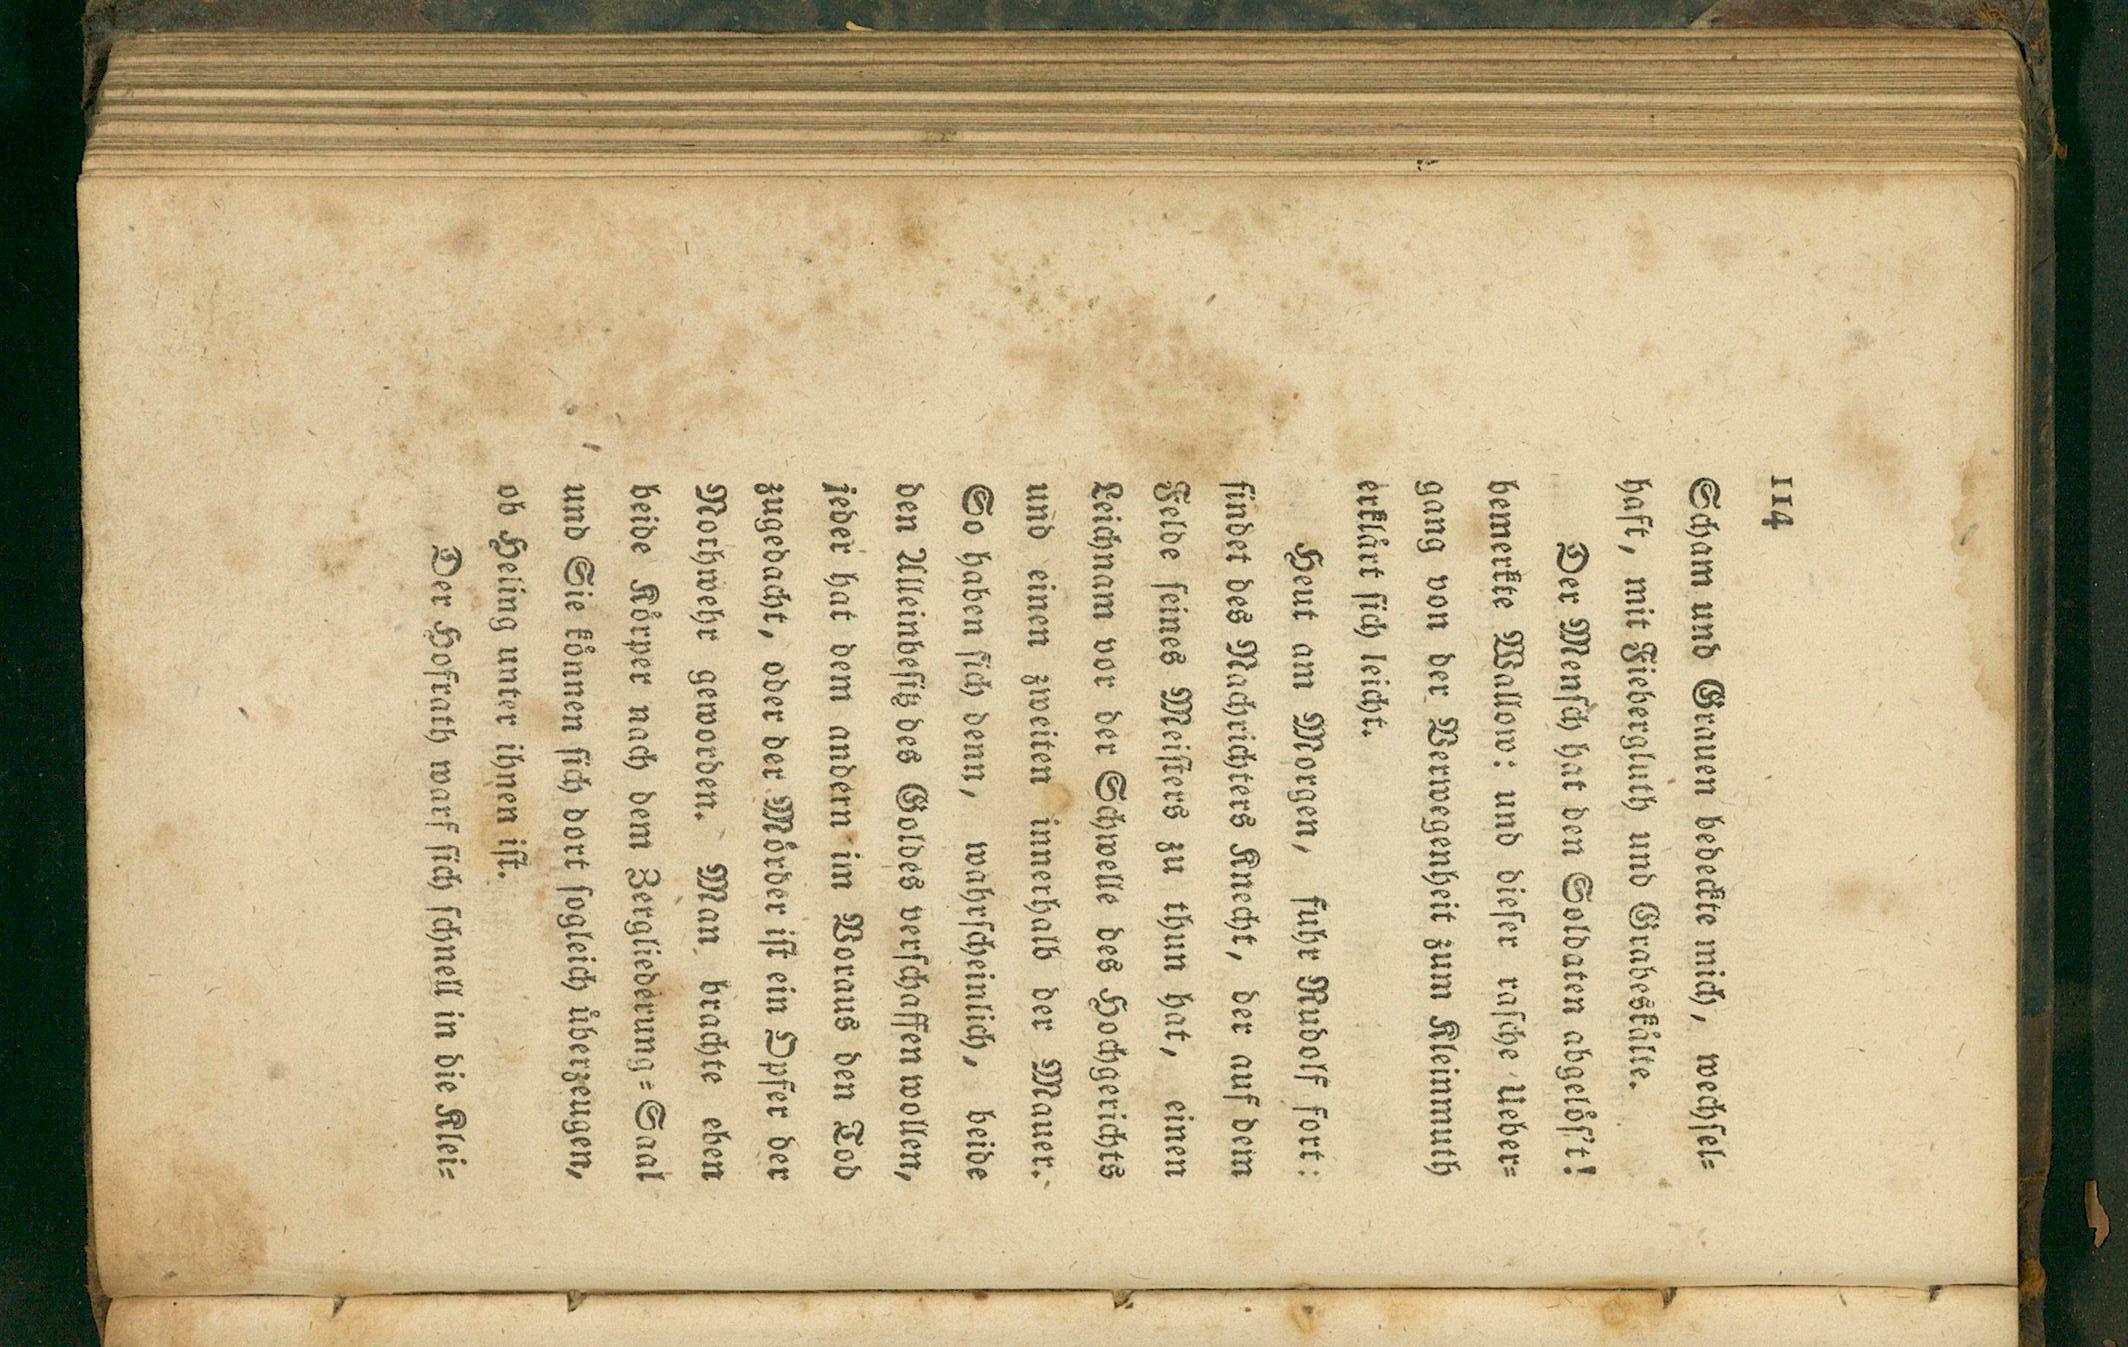 114
Scham und Grauen bedeckte mich, wechſel⸗
haft, mit Fiebergluth und Grabeskaͤlte.
Der Menſch hat den Soldaten abgeloͤſ't!
bemerkte Wallow: und dieſer raſche Ueber⸗
gang von der Verwegenheit zum Kleinmuth
erklaͤrt ſich leicht.
Heut am Morgen, fuhr Rudolf fort:
findet des Nachrichters Knecht, der auf dem
Felde ſeines Meiſters zu thun hat, einen
Leichnam vor der Schwelle des Hochgerichts
und einen zweiten innerhalb der Mauer.
So haben ſich denn, wahrſcheinlich, beide
den Alleinbeſitz des Goldes verſchaffen wollen,
jeder hat dem andern im Voraus den Tod
zugedacht, oder der Moͤrder iſt ein Opfer der
Nothwehr geworden. Man brachte eben
beide Koͤrper nach dem Zergliederung⸗Saal
und Sie koͤnnen ſich dort ſogleich uͤberzeugen,
ob Heling unter ihnen iſt.
Der Hofrath warf ſich ſchnell in die Klei⸗